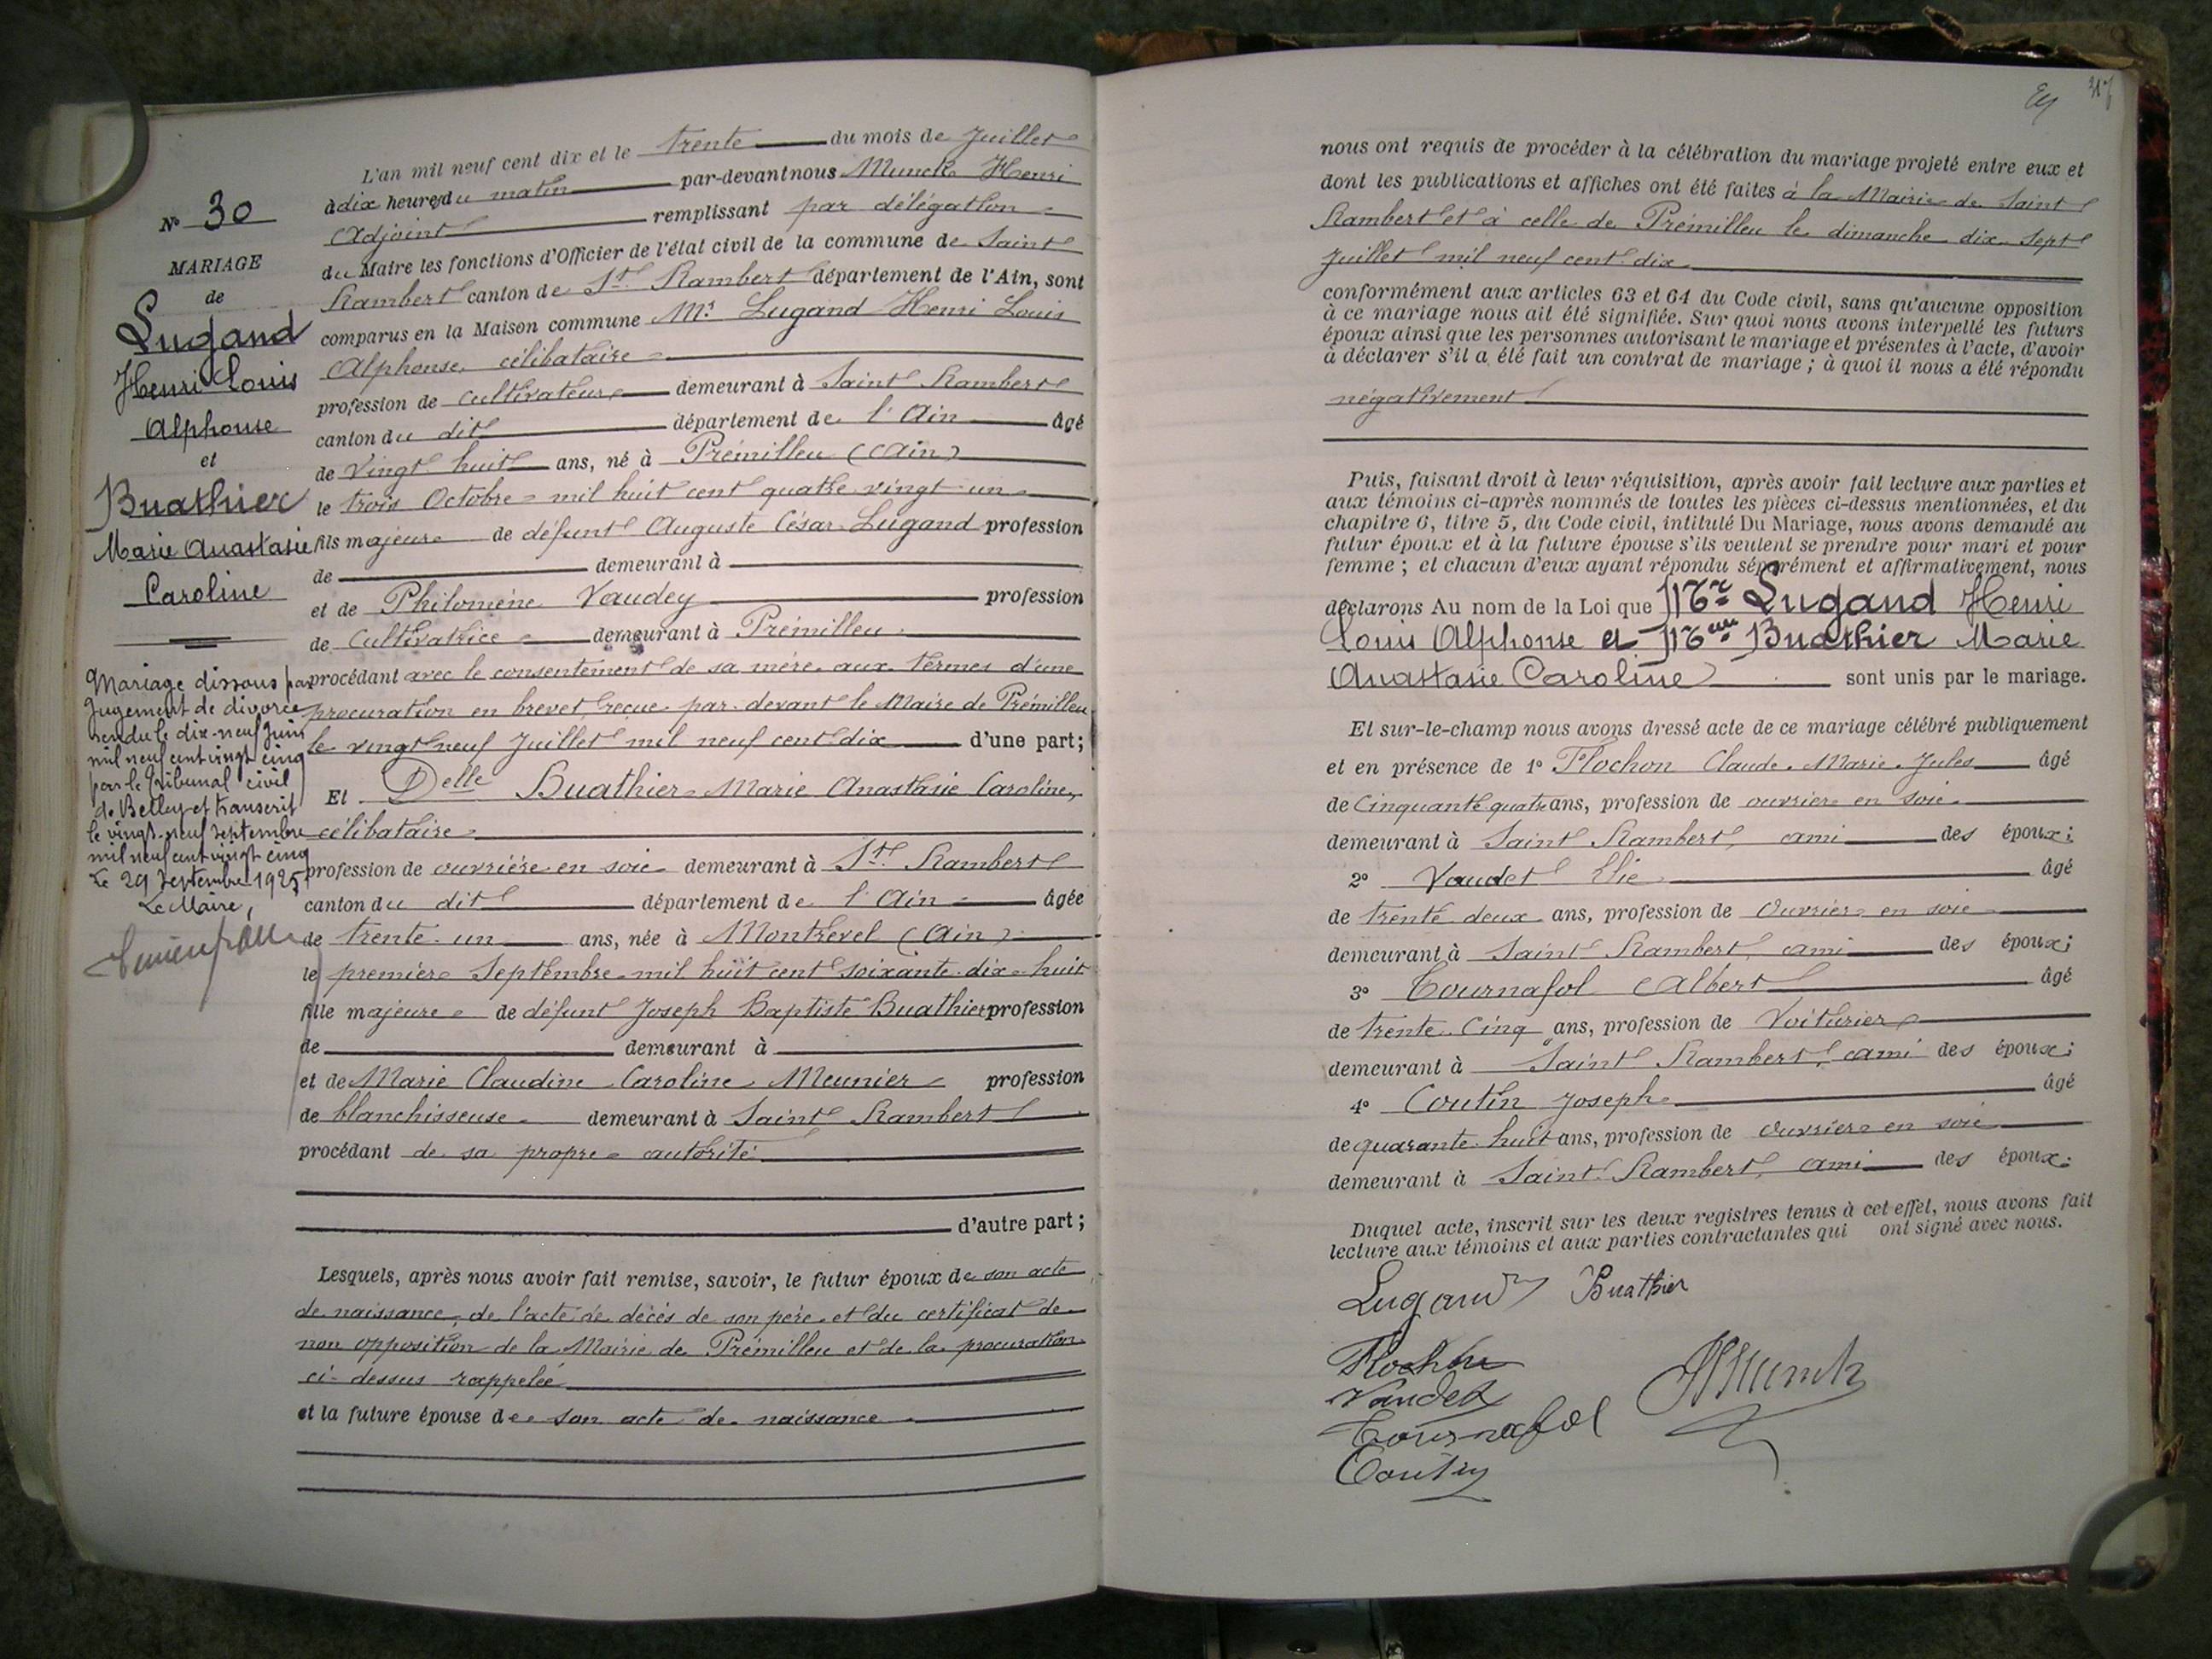 N° 30
MARIAGE
de
Lugand
Henri Louis
Alphonse
et
Buathier
Marie Anastasie
Caroline
Mariage dissous par
Jugement de divorce
rendu le dix-neuf Juin
mil neuf cent vingt cinq
par le Tribunal civil
de Belley et transcrit
le vingt-neuf Septembre
mil neuf cent vingt cinq
Le 29 Septembre 1925
Le Maire,
L'an mil neuf cent dix et le trente du mois de Juillet
à dix heures du matin par-devant nous Munck Henri
Adjoint remplissant par délégation
du Maire les fonctions d'Officier de l'état civil de la commune de Saint
Rambert canton de St Rambert département de l'Ain, sont
comparus en la Maison commune Mr Lugand Henri Louis
Alphonse, célibataire
profession de cultivateur demeurant à Saint Rambert
canton du dit département de l'Ain âgé
de vingt huit ans, né à Prémillieu (Ain)
le trois Octobre mil huit cent quatre vingt un
fils majeur de défunt Auguste César Lugand profession
de demeurant à
et de Philomène Vaudey profession
de Cultivatrice demeurant à Prémilleu
procédant avec le consentement de sa mère aux termes d'une
procuration en brevet reçue par devant le Maire de Prémilleu
le vingt neuf Juillet mil neuf cent dix d'une part;
Et Delle Buathier Marie Anastasie Caroline,
célibataire
profession de ouvrière en soie demeurant à St Rambert
canton du dit département de l'Ain âgée
de trente un ans, née à Montrevel (Ain)
le premier Septembre mil huit cent soixante dix huit
fille majeure de défunt Joseph Baptiste Buathier profession
de demeurant à
et de Marie Claudine Caroline Meunier profession
de blanchisseuse demeurant à Saint Rambert
procédant de sa propre autorité
d'autre part;
Lesquels, après nous avoir fait remise, savoir, le futur époux de son acte
de naissance, de l'acte de décès de son père et du certificat de
non opposition de la Mairie de Prémilleu et de la procuration
ci-dessus rappelée
et la future épouse de son acte de naissance
nous ont requis de procéder à la célébration du mariage projeté entre eux et
dont les publications et affiches ont été faites à la Mairie de Saint
Rambert et à celle de Prémilleu le dimanche dix sept
Juillet mil neuf cent dix
conformément aux articles 63 et 64 du Code civil, sans qu'aucune opposition
à ce mariage nous ait été signifiée. Sur quoi nous avons interpellé les futurs
époux ainsi que les personnes autorisant le mariage et présentes à l'acte, d'avoir
à déclarer s'il a été fait un contrat de mariage; à quoi il nous a été répondu
négativement.
Puis, faisant droit à leur réquisition, après avoir fait lecture aux parties et
aux témoins ci-après nommés de toutes les pièces ci-dessus mentionnées, et du
chapitre 6, titre 5, du Code civil, intitulé Du Mariage, nous avons demandé au
futur époux et à la future épouse s'ils veulent se prendre pour mari et pour
femme; et chacun d'eux ayant répondu séparément et affirmativement, nous
déclarons Au nom de la Loi que Mr Lugand Henri
Louis Alphonse et Buathier Marie
Anastasie Caroline sont unis par le mariage.
Et sur-le-champ nous avons dressé acte de ce mariage célébré publiquement
et en présence de 1° Flochon Claude Marie Jules âgé
de Cinquante quatre ans, profession de ouvrier en soie
demeurant à Saint Rambert, ami des époux;
2° Vaudet Elie âgé
de trente deux ans, profession de Ouvrier en soie
demeurant à Saint Rambert, ami des époux;
3° Tournafol Albert âgé
de trente Cinq ans, profession de Voiturier
demeurant à Saint Rambert, ami des époux;
4° Coutin Joseph âgé
de quarante huit ans, profession de Ouvrier en soie
demeurant à Saint Rambert, ami des époux.
Duquel acte, inscrit sur les deux registres tenus à cet effet, nous avons fait
lecture aux témoins et aux parties contractantes qui ont signé avec nous.
Lugand Buathier
Flochon
Vaudet HMunck
Tournafol
Coutin